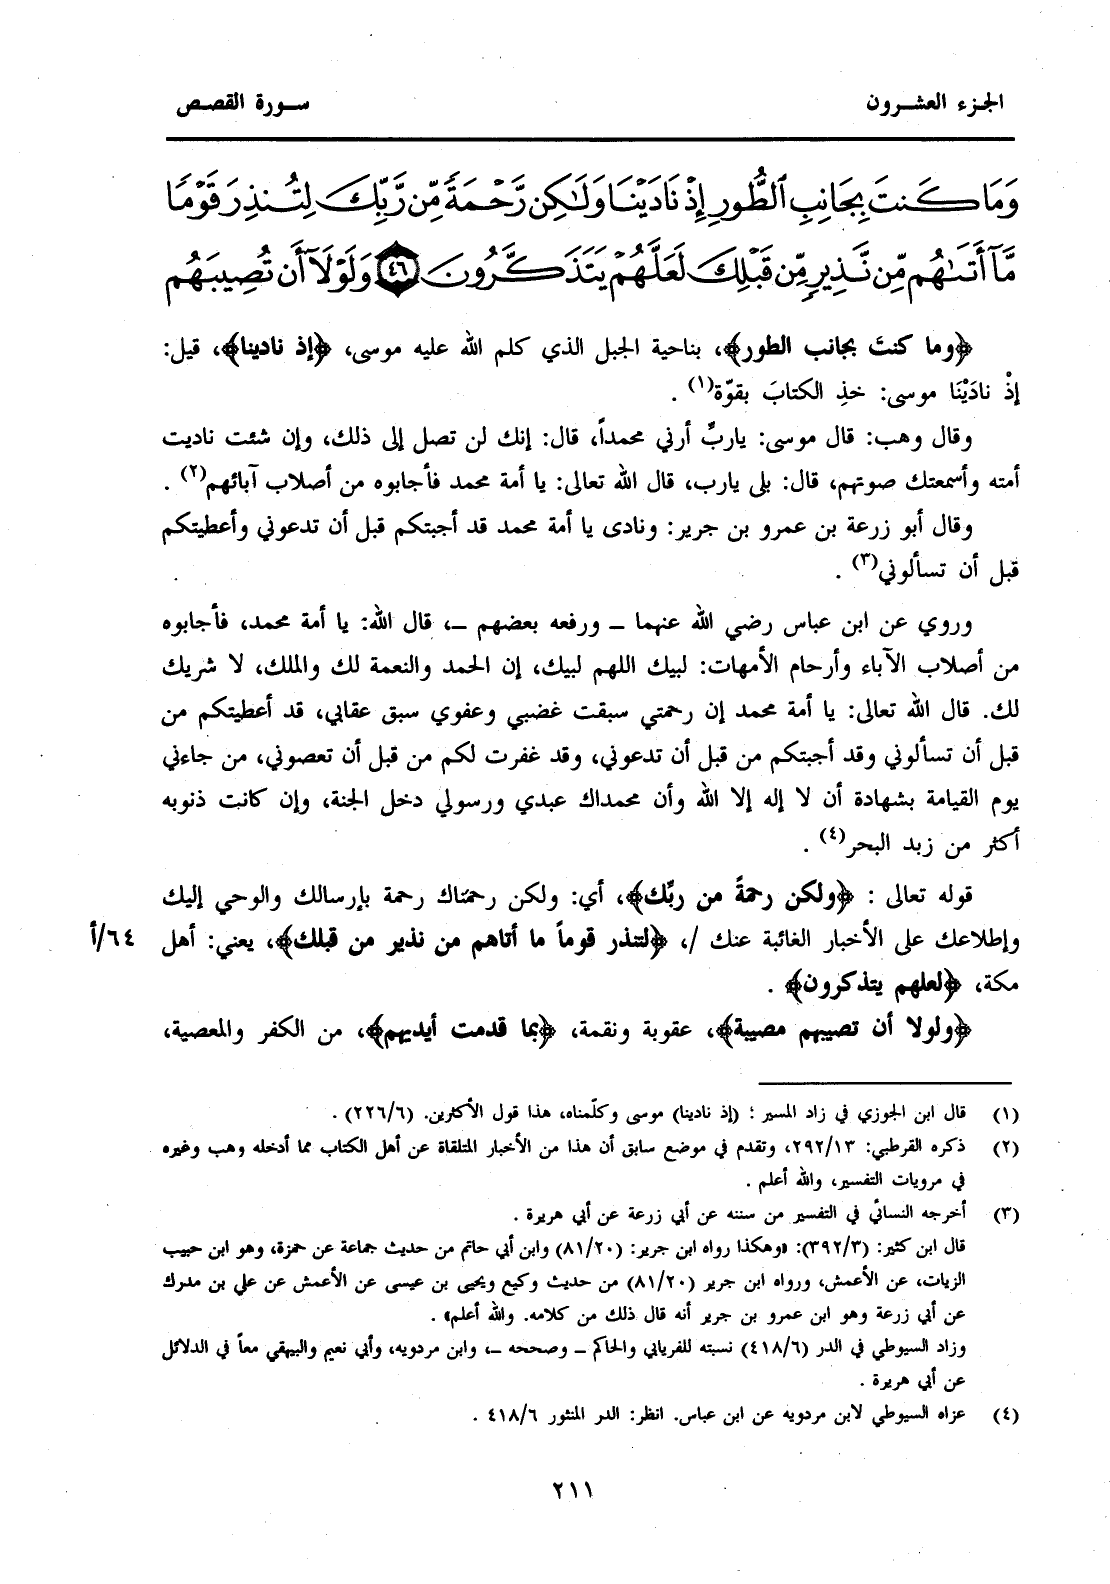 الجزء العشرون
سورة القصص
وَمَا كُنتَ بِجَانِبِ ٱلطُّورِ إِذْ نَادَيْنَا وَلَٰكِن رَّحْمَةً مِّن رَّبِّكَ لِتُنذِرَ قَوْمًا
مَّآ أَتَىٰهُم مِّن نَّذِيرٍ مِّن قَبْلِكَ لَعَلَّهُمْ يَتَذَكَّرُونَ ٤٦ وَلَوْلَآ أَن تُصِيبَهُم
﴿وما كنتَ بجانب الطور﴾، بناحية الجبل الذي كلم الله عليه موسى، ﴿إذ نادينا﴾، قيل:
إذْ نادَيْنَا موسى: خذِ الكتابَ بقوّة(١) .
وقال وهب: قال موسى: ياربِّ أرني محمداً، قال: إنك لن تصل إلى ذلك، وإن شئت ناديت
أمته وأسمعتك صوتهم، قال: بلى يارب، قال الله تعالى: يا أمة محمد فأجابوه من أصلاب آبائهم(٢) .
وقال أبو زرعة بن عمرو بن جرير: ونادى يا أمة محمد قد أجبتكم قبل أن تدعوني وأعطيتكم
قبل أن تسألوني(٣) .
وروي عن ابن عباس رضي الله عنهما ـ ورفعه بعضهم ـ، قال الله: يا أمة محمد، فأجابوه
من أصلاب الآباء وأرحام الأمهات: لبيك اللهم لبيك، إن الحمد والنعمة لك والملك، لا شريك
لك. قال الله تعالى: يا أمة محمد إن رحمتي سبقت غضبي وعفوي سبق عقابي، قد أعطيتكم من
قبل أن تسألوني وقد أجبتكم من قبل أن تدعوني، وقد غفرت لكم من قبل أن تعصوني، من جاءني
يوم القيامة بشهادة أن لا إله إلا الله وأن محمداً عبدي ورسولي دخل الجنة، وإن كانت ذنوبه
أكثر من زبد البحر(٤) .
قوله تعالى : ﴿ولكن رحمةً من ربِّك﴾، أي: ولكن رحمناك رحمة بإرسالك والوحي إليك
وإطلاعك على الأخبار الغائبة عنك /، ﴿لتنذر قوماً ما أتاهم من نذير من قبلك﴾، يعني: أهل ٦٤/أ
مكة، ﴿لعلهم يتذكرون﴾ .
﴿ولولا أن تصيبهم مصيبة﴾، عقوبة ونقمة، ﴿بما قدمت أيديهم﴾، من الكفر والمعصية،
(١) قال ابن الجوزي في زاد المسير : (إذ نادينا) موسى وكلّمناه، هذا قول الأكثرين. (٢٢٦/٦) .
(٢) ذكره القرطبي: ٢٩٢/١٣، وتقدم في موضع سابق أن هذا من الأخبار المتلقاة عن أهل الكتاب مما أدخله وهب وغيره
في مرويات التفسير، والله أعلم .
(٣) أخرجه النسائي في التفسير من سننه عن أبي زرعة عن أبي هريرة .
قال ابن كثير: (٣٩٢/٣): «وهكذا رواه ابن جرير: (٨١/٢٠) وابن أبي حاتم من حديث جماعة عن حمزة، وهو ابن حبيب
الزيات، عن الأعمش، ورواه ابن جرير (٨١/٢٠) من حديث وكيع ويحيى بن عيسى عن الأعمش عن علي بن مدرك
عن أبي زرعة وهو ابن عمرو بن جرير أنه قال ذلك من كلامه. والله أعلم» .
وزاد السيوطي في الدر (٤١٨/٦) نسبته للفريابي والحاكم ـ وصححه ـ، وابن مردويه، وأبي نعيم والبيهقي معاً في الدلائل
عن أبي هريرة .
(٤) عزاه السيوطي لابن مردويه عن ابن عباس. انظر: الدر المنثور ٤١٨/٦ .
٢١١